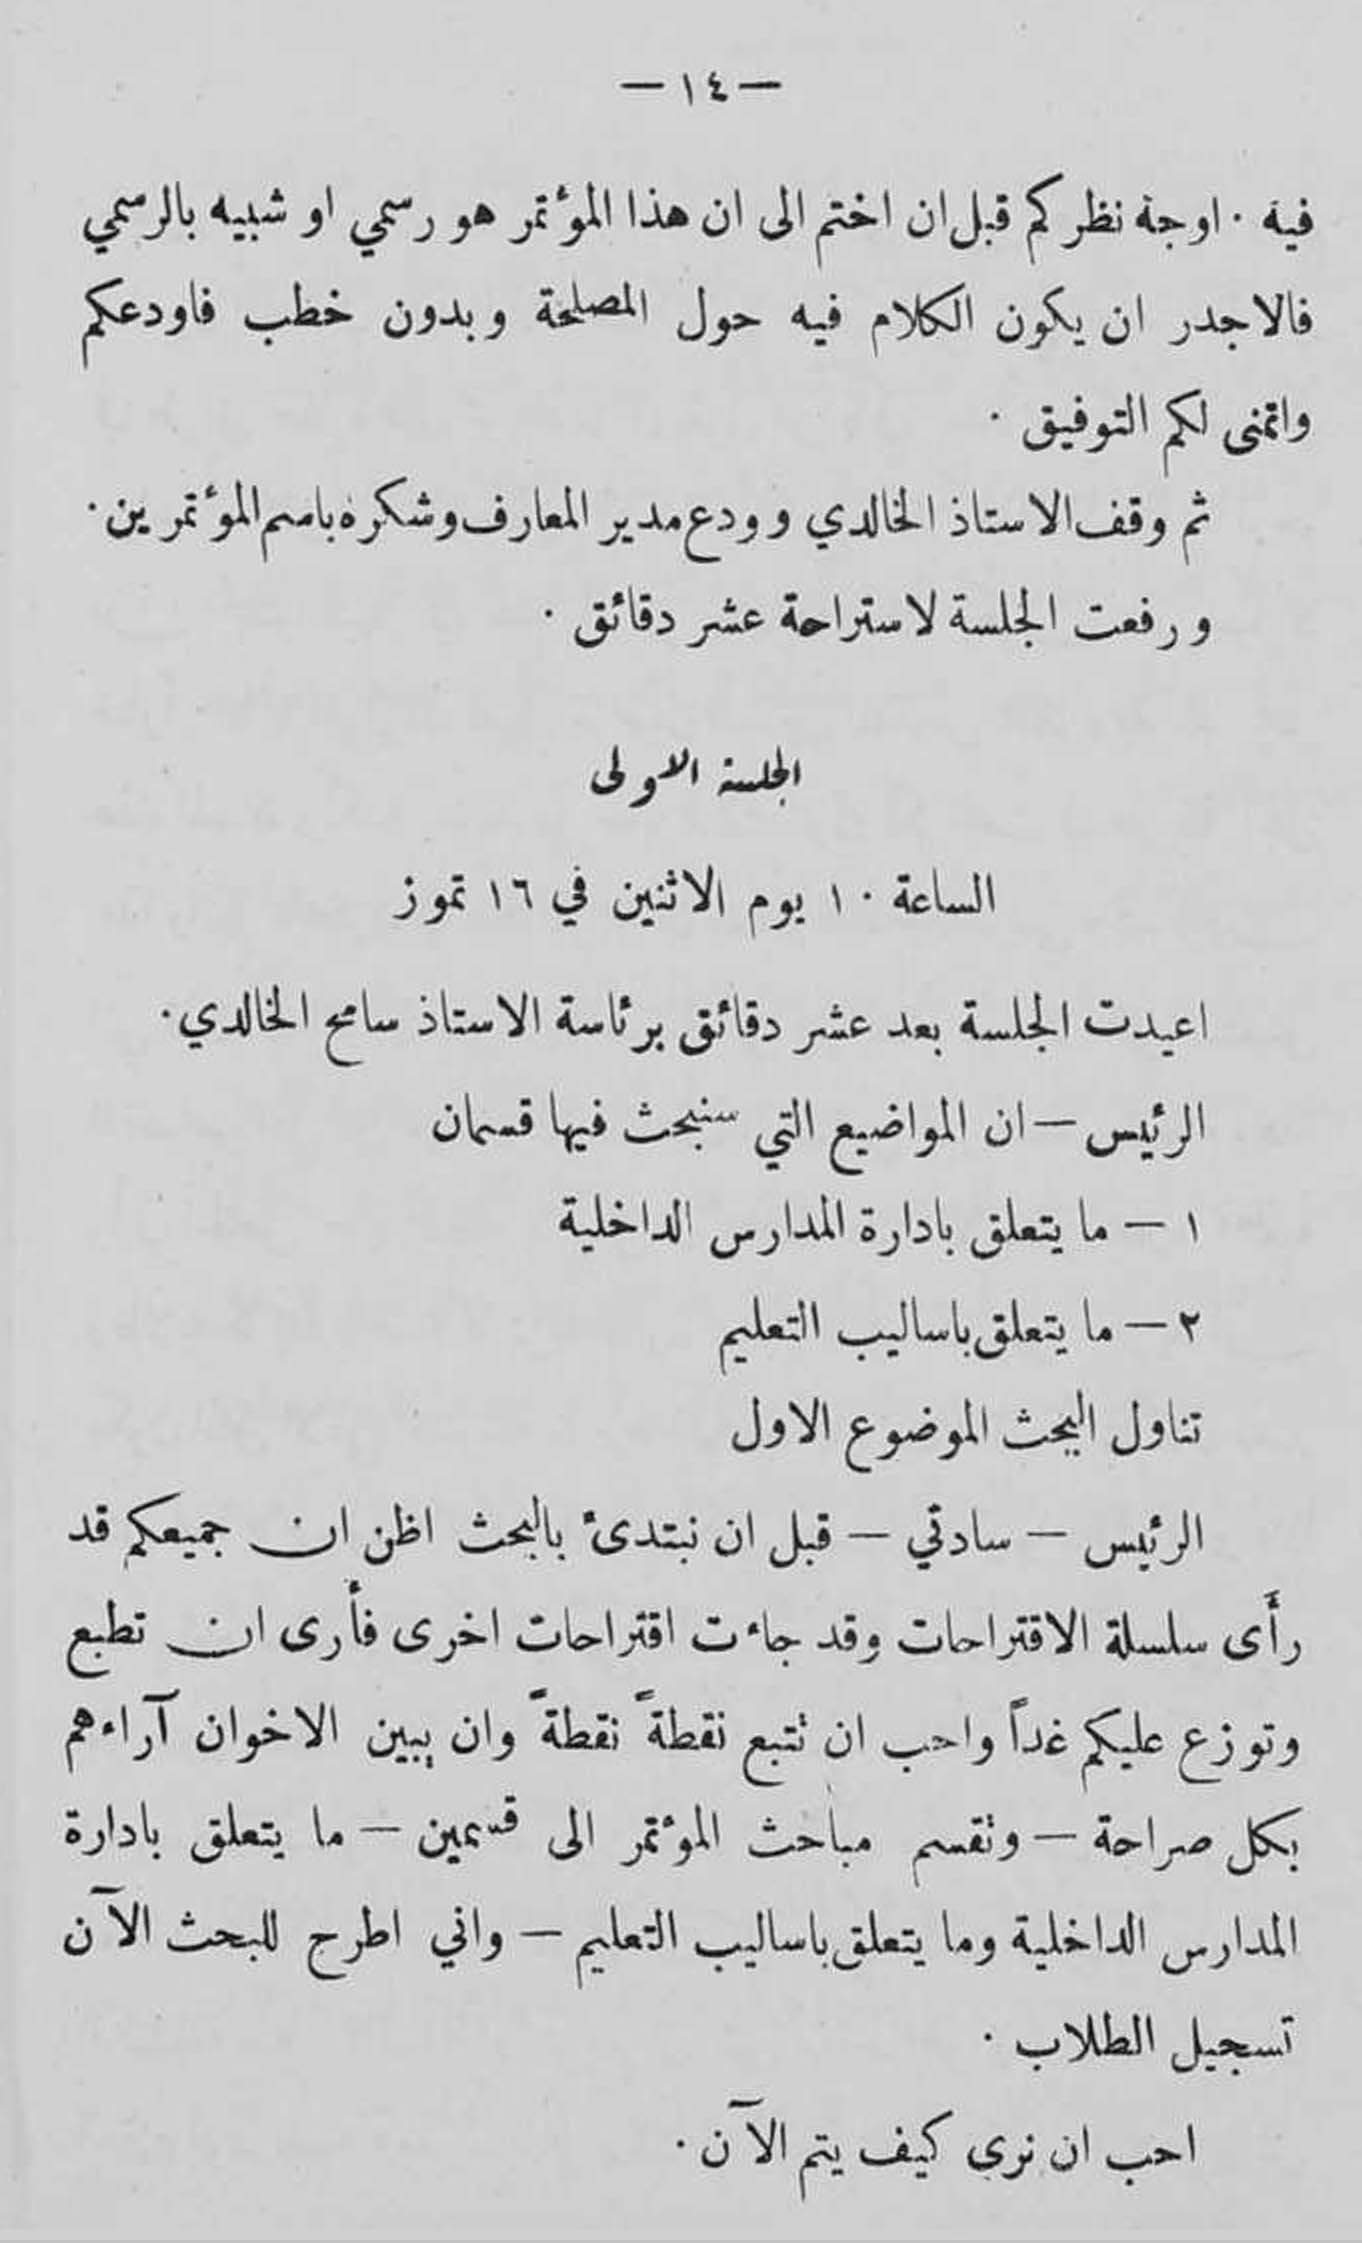 — ١٤ —
فيه ٠ اوجه نظركم قبل ان اختم الى ان هذا المؤتمر هو رسمي او شبيه بالرسمي
فالاجدر ان يكون الكلام فيه حول المصلحة وبدون خطب فاودعكم
واتمنى لكم التوفيق ٠
ثم وقف الاستاذ الخالدي وودع مدير المعارف وشكره باسم المؤتمرين ٠
ورفعت الجلسة لاستراحة عشر دقائق ٠
الجلسة الاولى
الساعة ١٠ يوم الاثنين في ١٦ تموز
اعيدت الجلسة بعد عشر دقائق برئاسة الاستاذ سامح الخالدي ٠
الرئيس — ان المواضيع التي سنبحث فيها قسمان
١ — ما يتعلق بادارة المدارس الداخلية
٢ — ما يتعلق باساليب التعليم
تناول البحث الموضوع الاول
الرئيس — سادتي — قبل ان نبتدئ بالبحث اظن ان جميعكم قد
رأى سلسلة الاقتراحات وقد جاءت اقتراحات اخرى فأرى ان تطبع
وتوزع عليكم غداً واحب ان نتبع نقطةً نقطةً وان يبين الاخوان آراءهم
بكل صراحة — ونقسم مباحث المؤتمر الى قسمين — ما يتعلق بادارة
المدارس الداخلية وما يتعلق باساليب التعليم — واني اطرح للبحث الآن
تسجيل الطلاب ٠
احب ان نرى كيف يتم الآن ٠